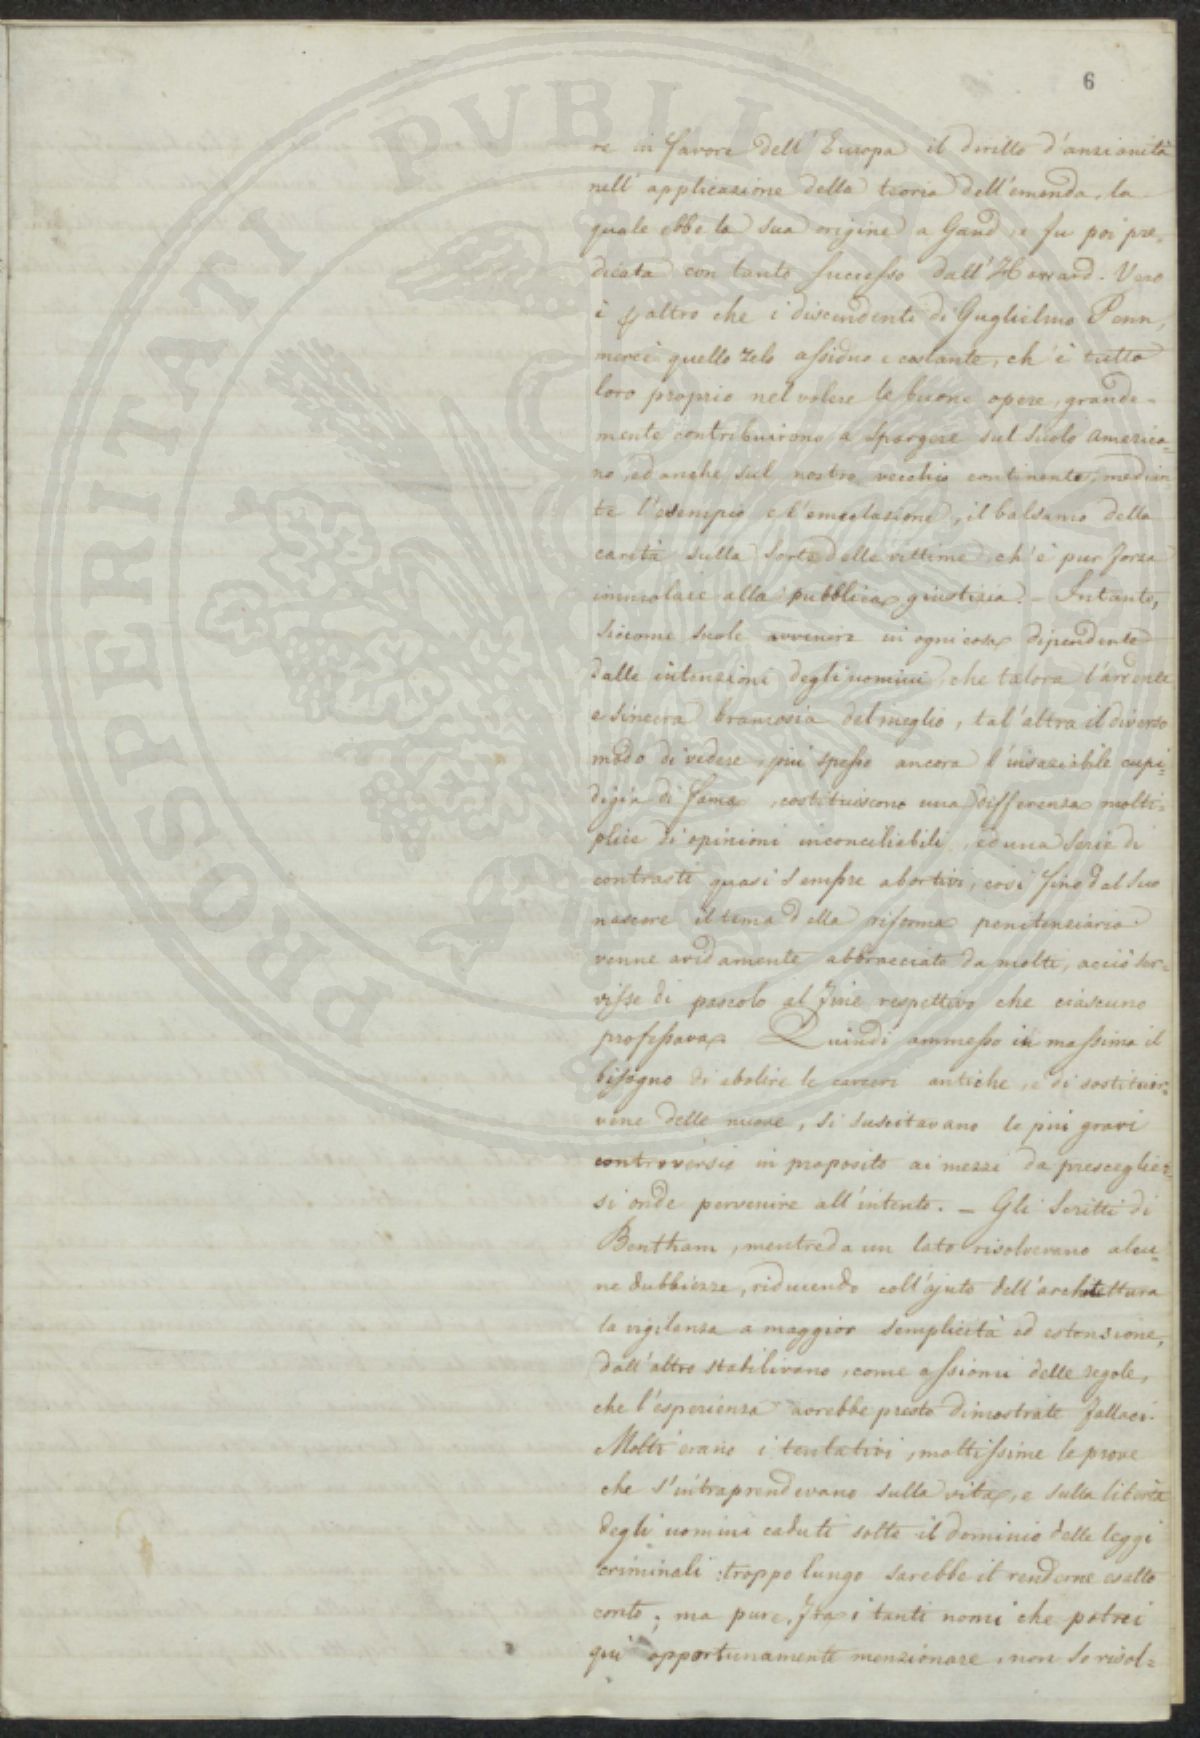 PROSPERITATI PVBLICAE
6
re in favore dell'Europa il diritto d'anzianità
nell'applicazione della teoria dell'emenda, la
quale ebbe la sua origine a Gand, e fu poi pre=
dicata con tanto successo dall'Howard. Vero
è p altro che i discendenti di Guglielmo Penn,
mercè quello zelo assiduo e costante, ch'è tutto
loro proprio nel volere le buone opere, grande=
mente contribuirono a spargere sul suolo america=
no, ed anche sul nostro vecchio continente, median
te l'esempio e l'emulazione, il balsamo della
carità sulla sorte delle vittime ch'è pur forza
immolare alla pubblica giustizia. – Intanto,
siccome suole avvenire in ogni cosa dipendente
dalle intenzioni degli uomini, che talora l'ardente
e sincera bramosia del meglio, tal'altra il diverso
modo di vedere, più spesso ancora l'insaziabile cupi=
digia di fama, costituiscono una differenza molti=
plice di opinioni inconciliabili, ed una serie di
contrasti quasi sempre abortivi, così fino dal suo
nascere il tema della riforma penitenziaria
venne avidamente abbracciato da molti, acciò ser=
visse di pascolo al fine respettivo che ciascuno
professava. Quindi ammesso in massima il
bisogno di abolire le carceri antiche, e di sostituir=
vene delle nuove, si suscitavano le più gravi
controversie in proposito ai mezzi da prescieglier=
si onde pervenire all'intento. – Gli scritti di
Bentham, mentre da un lato risolvevano alcu=
ne dubbiezze, riducendo coll'ajuto dell'architettura
la vigilanza a maggior semplicità ed estensione,
dall'altro stabilivano, come assiomi delle regole,
che l'esperienza avrebbe presto dimostrate fallaci.
Molti erano i tentativi, moltissime le prove
che s'intraprendevano sulla vita, e sulla libertà
degli uomini caduti sotto il dominio delle leggi
criminali: troppo lungo sarebbe il renderne esatto
conto; ma pure, fra i tanti nomi che potrei
qui opportunamente menzionare, non so risol=